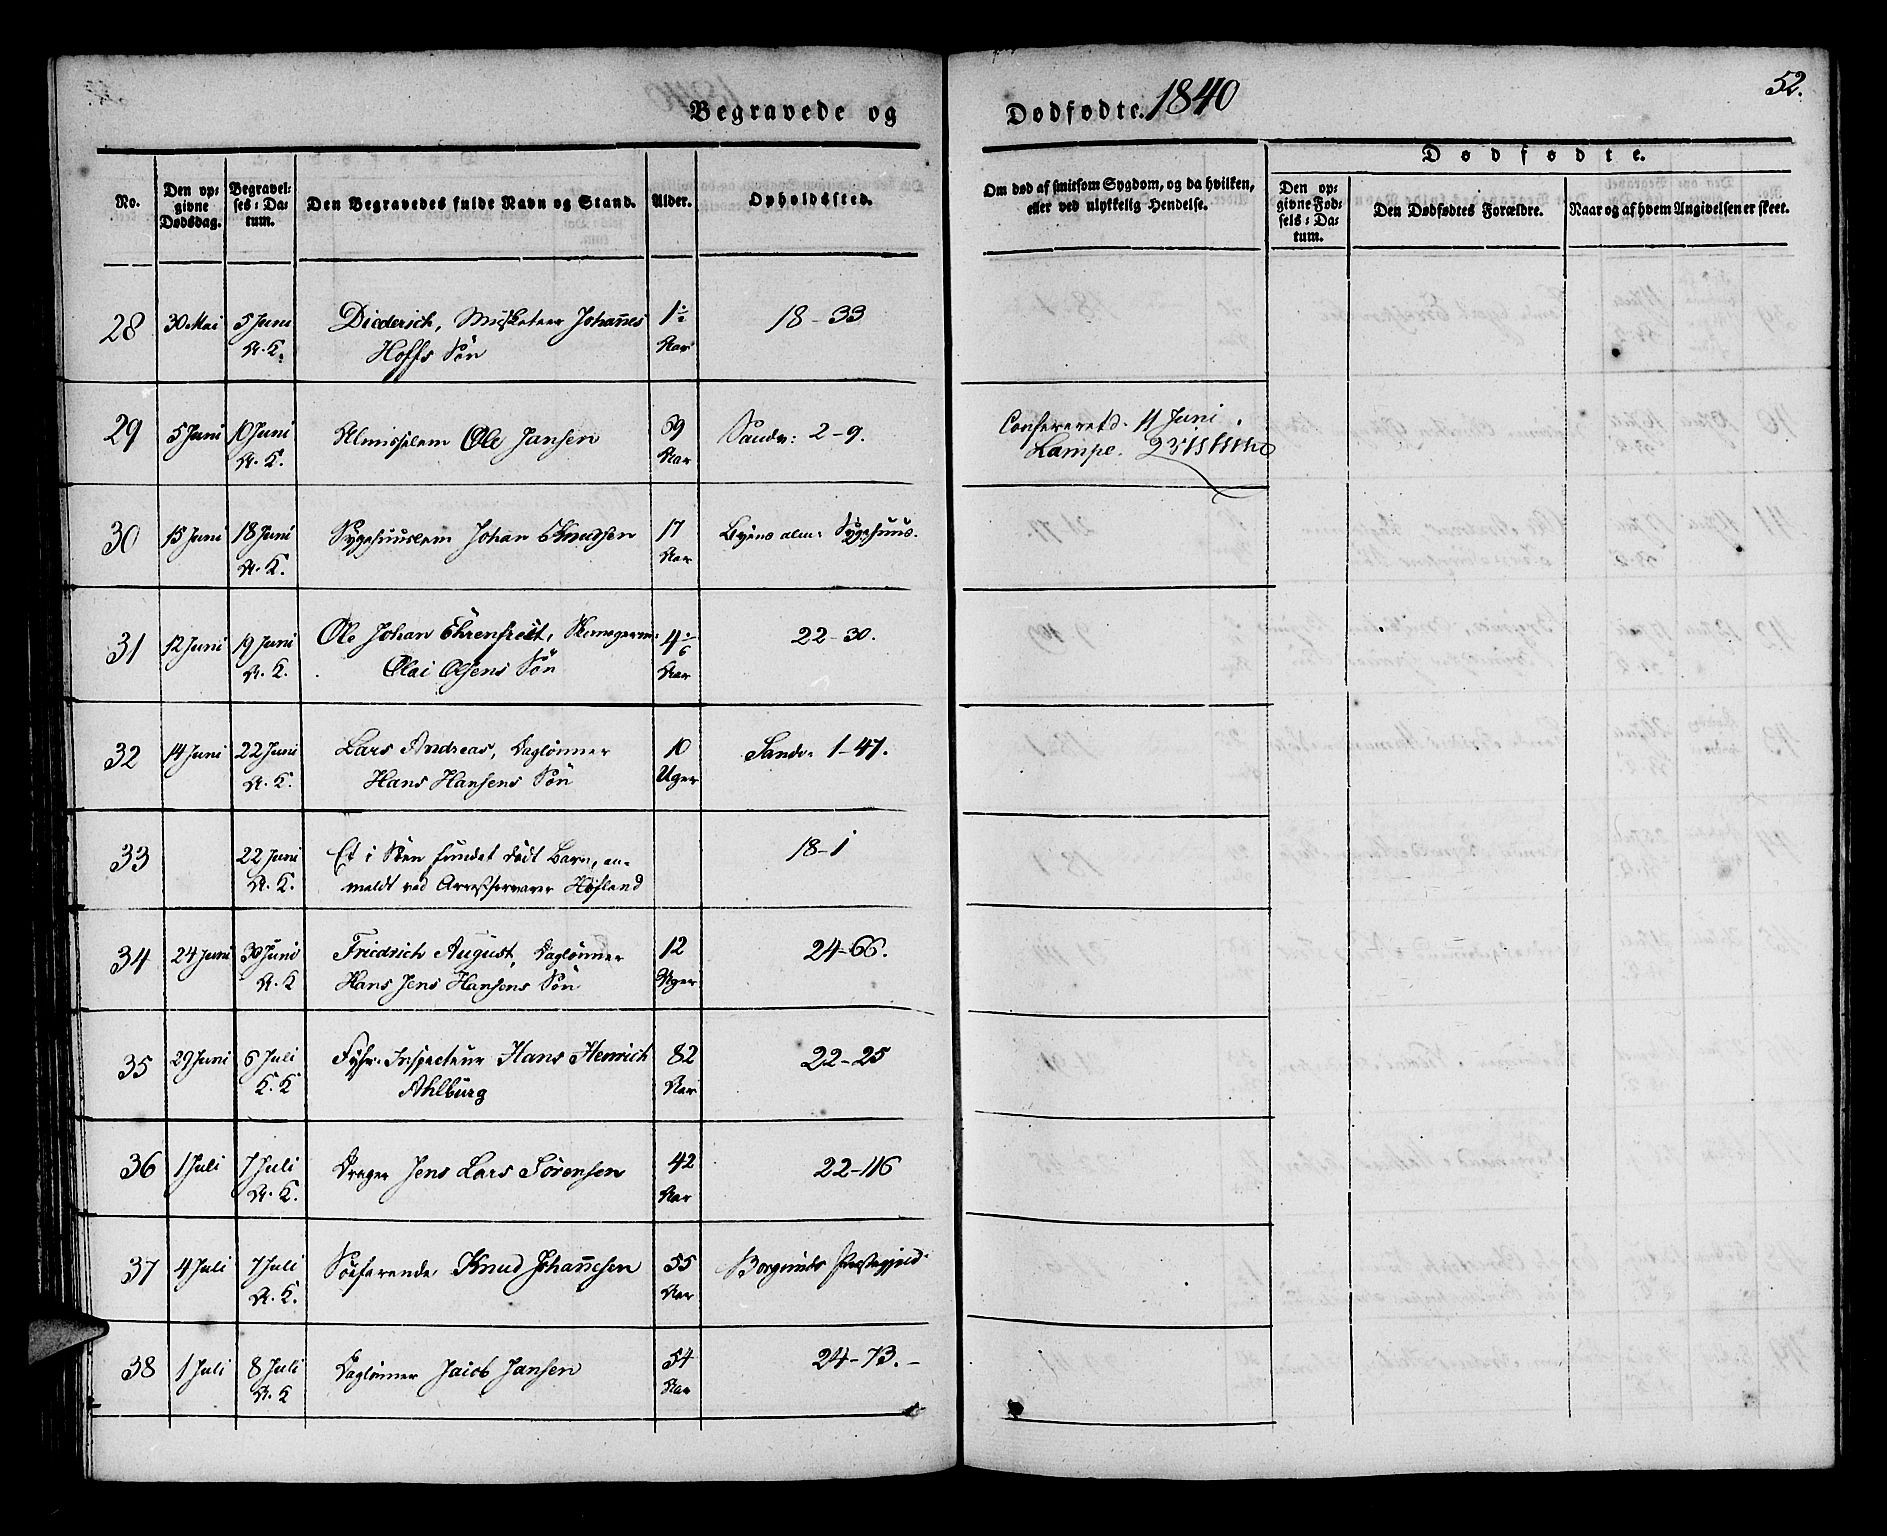 52.
Begravede og Dødfødte. 1840
No.
Den opgivne Dødsdag.
Begravelses-Datum.
Den Begravedes fulde Navn og Stand.
Alder.
Opholdssted.
Om død af smitsom Sygdom, og da hvilken, eller ved ulykkelig Hendelse.
Dødfødte.
Den opgivne Fødsels-Datum.
Den Dødfødtes Forældre.
Naar og af hvem Angivelsen er skeet.
28 30 Mai 5 Juni Diederich, Musketeer Johannes 1 18-33
A. K. Hoffs Søn Aar
29 5 Juni 10 Juni Almisselem Ole Jansen 69 Sandv: 2-9. Confereret d. 11 Juni
A. K. Aar Lampe.
30 15 Juni 18 Juni Sygehuuslem Johan Knudsen 17 Byens alm: Sygehuus.
A. K. Aar
31 12 Juni 19 Juni Ole Johan Ehrenfreit, 4 22-30.
A. K. Olai Olsens Søn Aar
32 14 Juni 22 Juni Lars Andreas, Daglønner 10 Sandv: 1-47.
A. K. Hans Hansens Søn Uger
33 22 Juni Et i Søen fundet dødt Barn, an- 18-1
A. K. meldt ved Arrestforvarer Høyland
34 24 Juni 30 Juni Friedrich August, Daglønner 12 24-66.
A. K Hans Jens Hansens Søn Uger
35 29 Juni 6 Juli Fyhr-Inspecteur Hans Henrich 82 22-25
K. K Ahlburg Aar
36 1 Juli 7 Juli Drager Jens Lars Sørensen 42 22-116
A. K. Aar
37 4 Juli 7 Juli Søefarende Knud Johannesen 55 Borgunds Præstegjeld
A. K. Aar
38 1 Juli 8 Juli Daglønner Jacob Jansen 54 24-73.-
A. K Aar